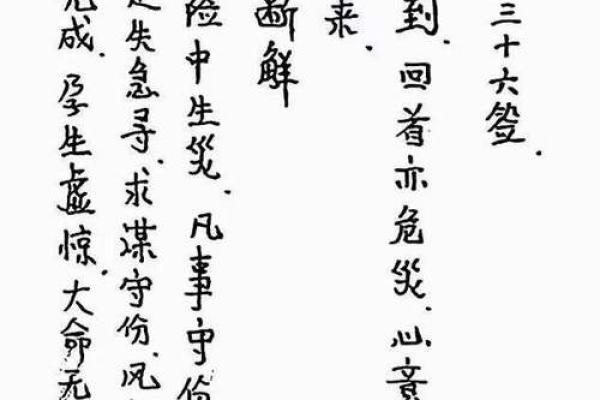 三十六签.
到.回首亦危災.心意
来.
断鲜
险中生災.凡事守份
走失急寻.求谋守份.风
成.孕生虚惊.大命无